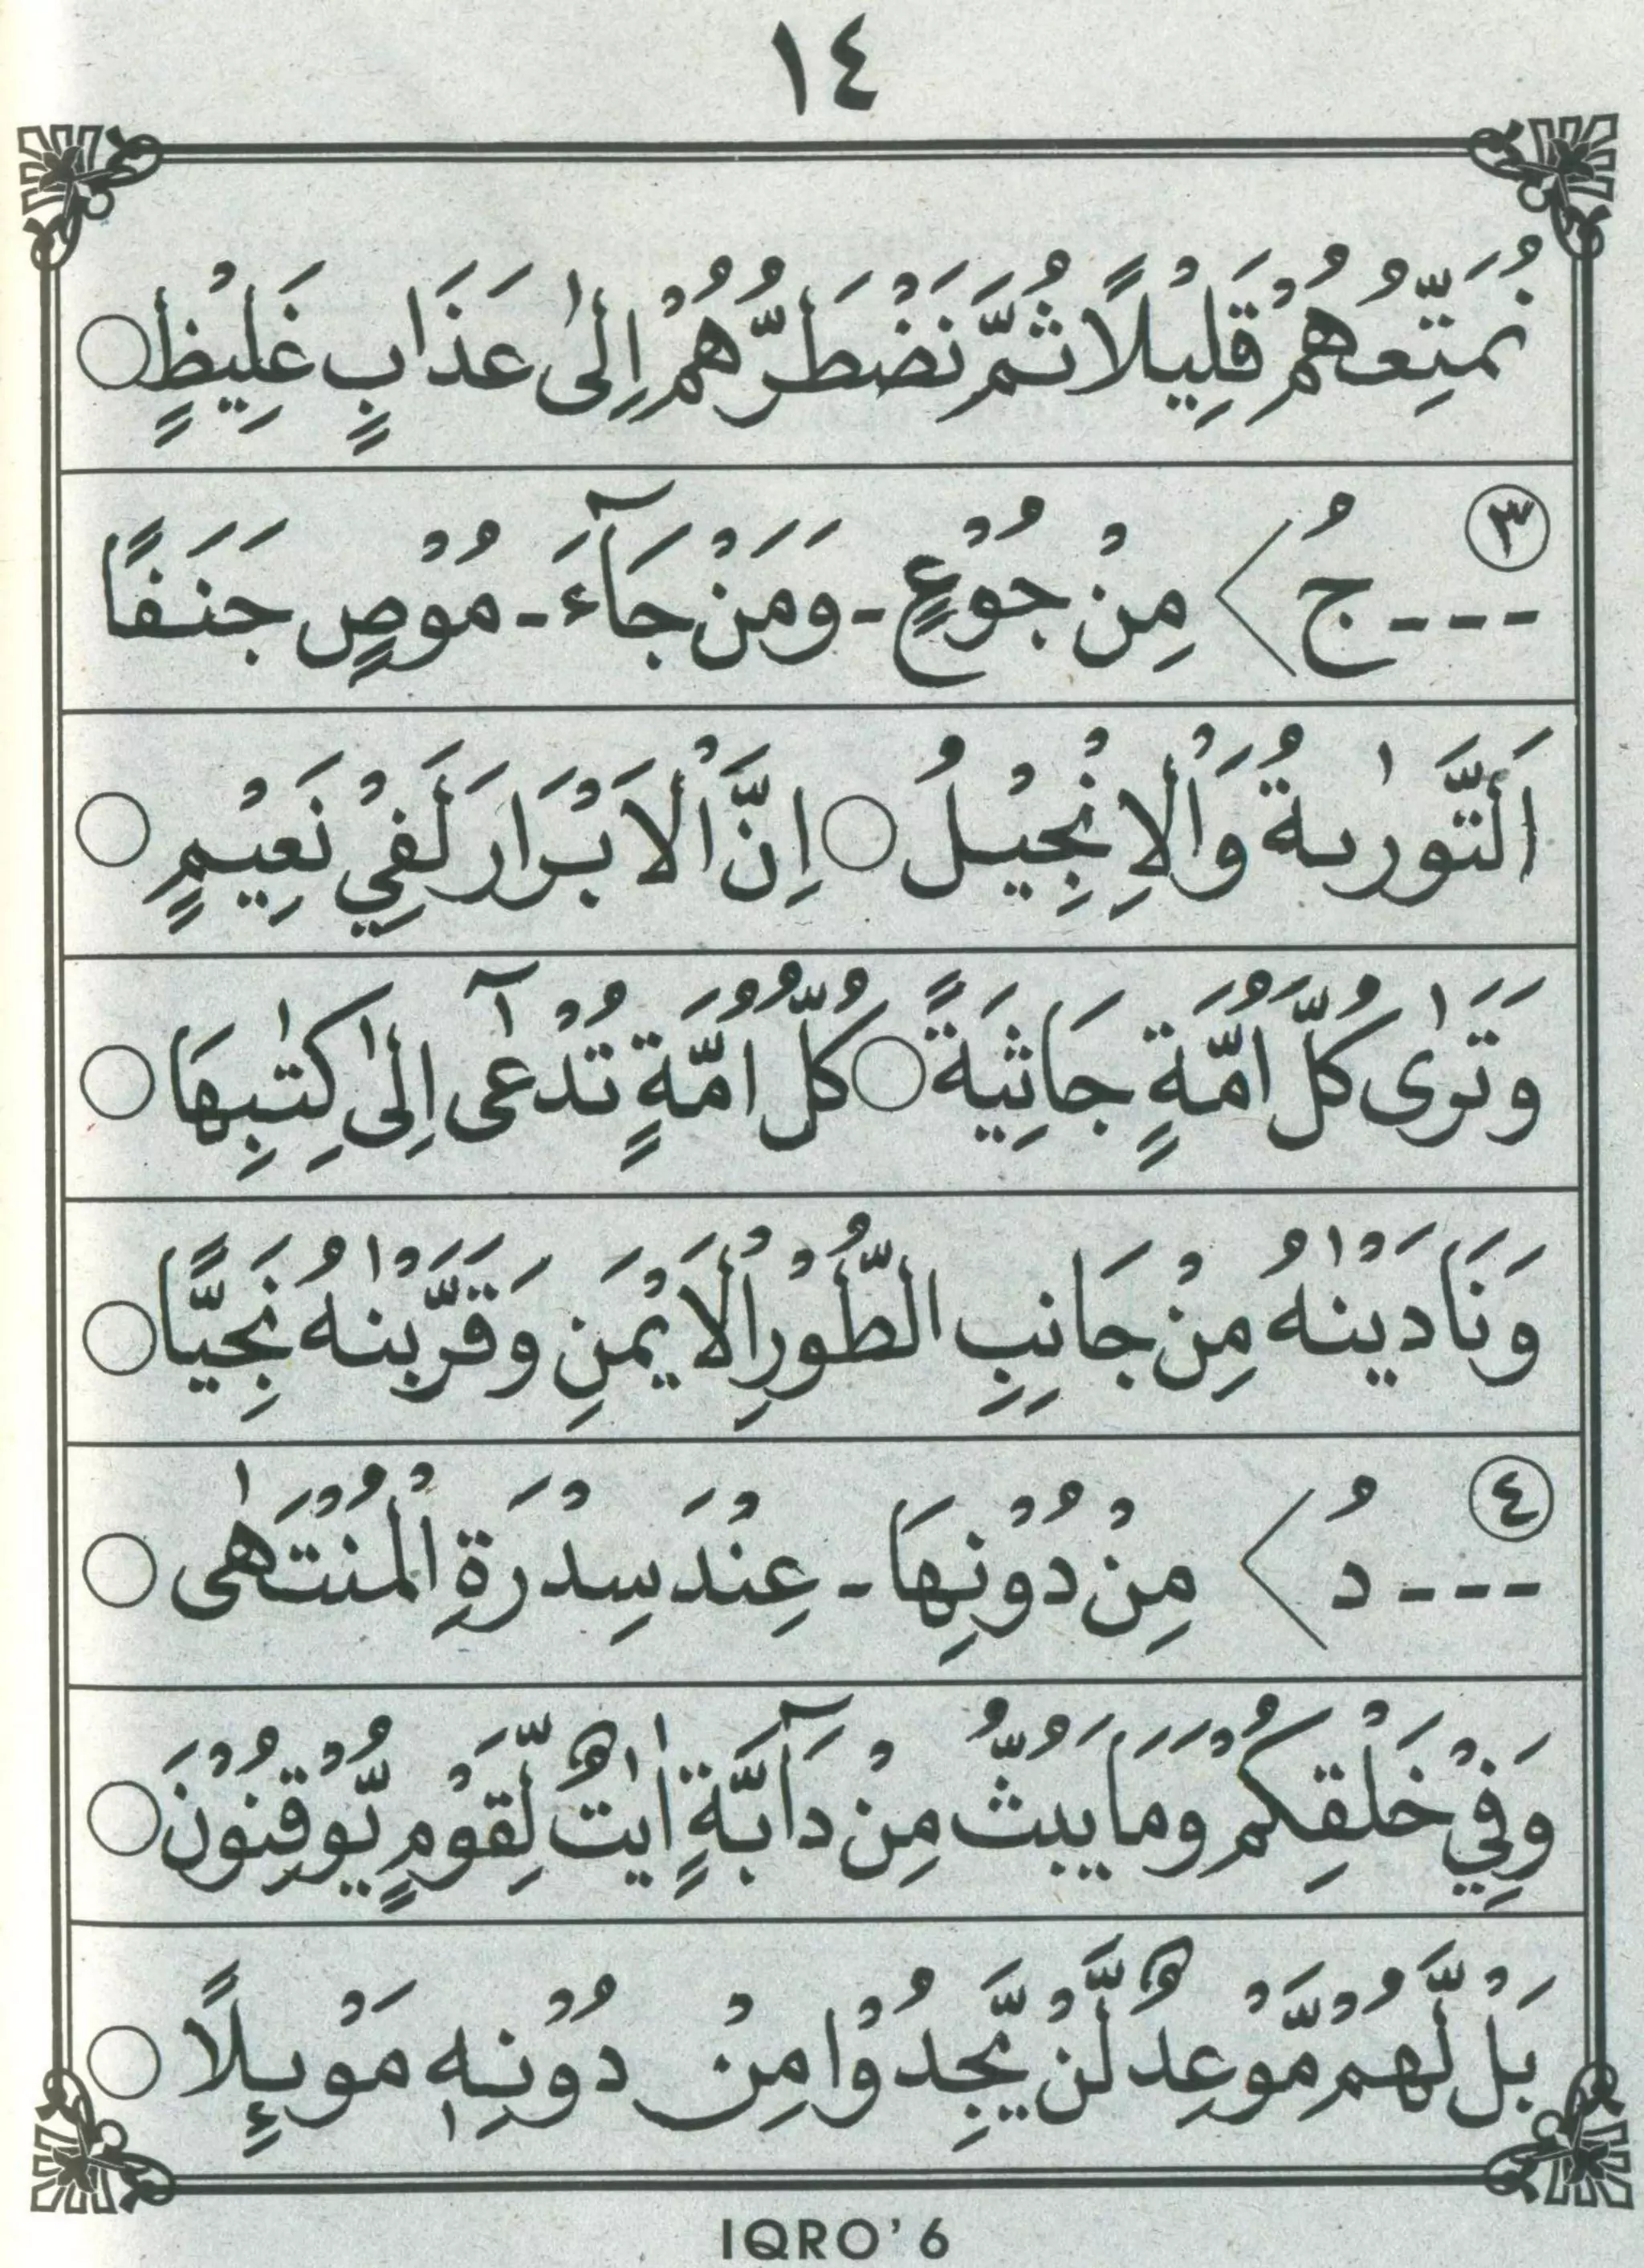 ١٤
نُمَتِّعُهُمْ قَلِيْلًا ثُمَّ نَضْطَرُّهُمْ اِلٰى عَذَابٍ غَلِيْظٍ ○
٣
---جُ > مِنْ جُوْعٍ - وَمَنْ جَآءَ - مُوْصٍ جَنَفًا
اَلتَّوْرٰىةُ وَالْاِنْجِيْلُ ○ اِنَّ الْاَبْرَارَ لَفِيْ نَعِيْمٍ ○
وَتَرٰى كُلَّ اُمَّةٍ جَاثِيَةً ○ كُلُّ اُمَّةٍ تُدْعٰٓى اِلٰى كِتٰبِهَا ○
وَنَادَيْنٰهُ مِنْ جَانِبِ الطُّوْرِ الْاَيْمَنِ وَقَرَّبْنٰهُ نَجِيًّا ○
٤
---دُ > مِنْ دُوْنِهَا - عِنْدَ سِدْرَةِ الْمُنْتَهٰى ○
وَفِيْ خَلْقِكُمْ وَمَا يَبُثُّ مِنْ دَآبَّةٍ اٰيٰتٌ لِّقَوْمٍ يُّوْقِنُوْنَ ○
بَلْ لَّهُمْ مَّوْعِدٌ لَّنْ يَّجِدُوْا مِنْ دُوْنِهٖ مَوْىِٕلًا ○
IQRO' 6